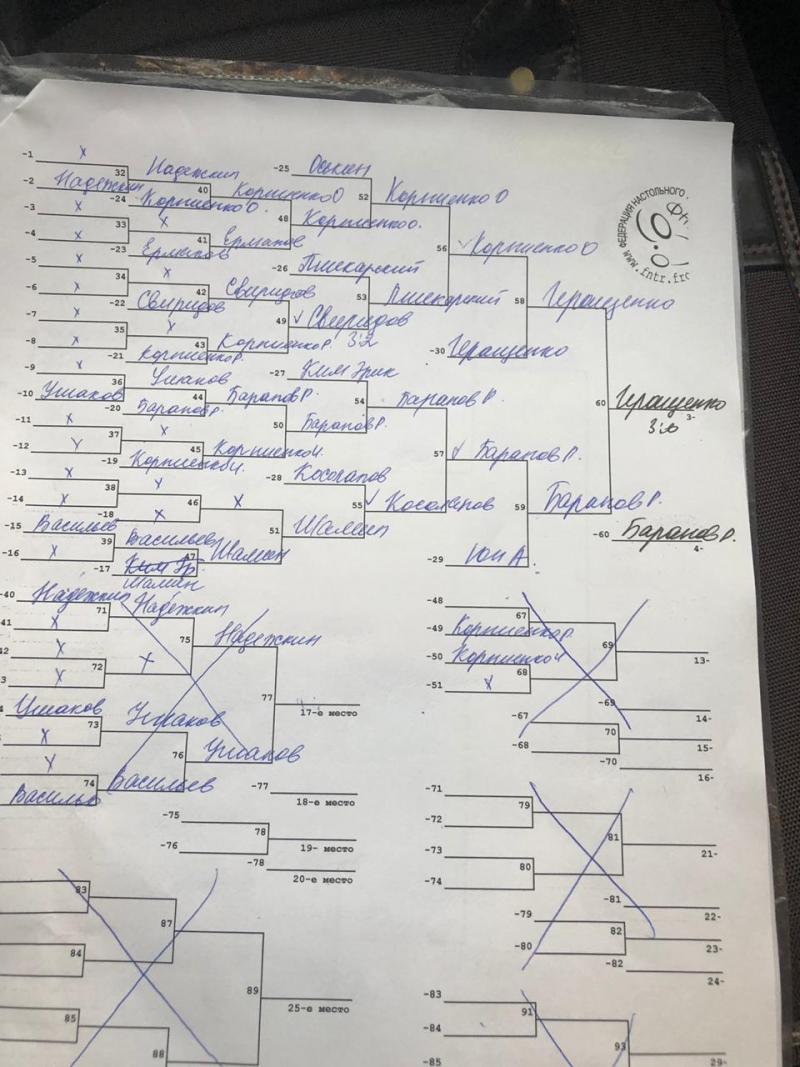 -1 X
32 Надежкин
-25 Оскин
-2 Надежкин
40 Корниенко О
52 Корниенко О
-24 Корниенко О.
-3 X
48 Корниенко О.
33 X
-4 X
41 Ерманов
56 Корниенко О
-23
-26 Пшекарский
-5 X
34 X
42 Свиридов
53 Пшекарский
58 Геращенко
-6 X
-22 Свиридов
49 Свиридов
-7 X
35 X
3:2
-8 X
43 Корниенко Р.
-30 Геращенко
-21 Корниенко Р.
-9 X
-27 Ким Эрик
36 Ушаков
-10 Ушаков
44 Барапов Р.
54 Барапов Р
60 Геращенко
3-
3:0
-20 Барапов Р.
-11 X
50 Барапов Р.
37 X
-12 X
45 Корниенко И.
57 Барапов Р.
-19 Корниенко И.
-13 X
-28 Косолапов
38 X
-14 X
46 X
55 Косолапов
59 Барапов Р.
-18 X
51 Шамшин
-15 Васильев
39 Васильев
-60 Барапов Р.
4-
-16 X
47 Шамин
-17
Шамин
-29 Юн А.
-40 Надежкин
71 Надежкин
-48
67
-41 X
75 Надежкин
-49 Корниенко Р.
69
42 X
72 X
-50 Корниенко И
13-
3 X
68
-51 X
77
17-е место
-69
14-
Ушаков
73 Ушаков
-67
70
15-
X
76 Ушаков
-68
-70
16-
X
74 Васильев
Васильев
-77
18-е место
-71
79
-75
78
19- место
-72
81
21-
-76
-78
20-е место
-73
80
-74
-81
22-
83
87
-79
82
23-
84
-80
-82
24-
89
25-е место
-83
91
85
-84
93
88
-85
29-
ФЕДЕРАЦИЯ НАСТОЛЬНОГО
www.fntr.frc